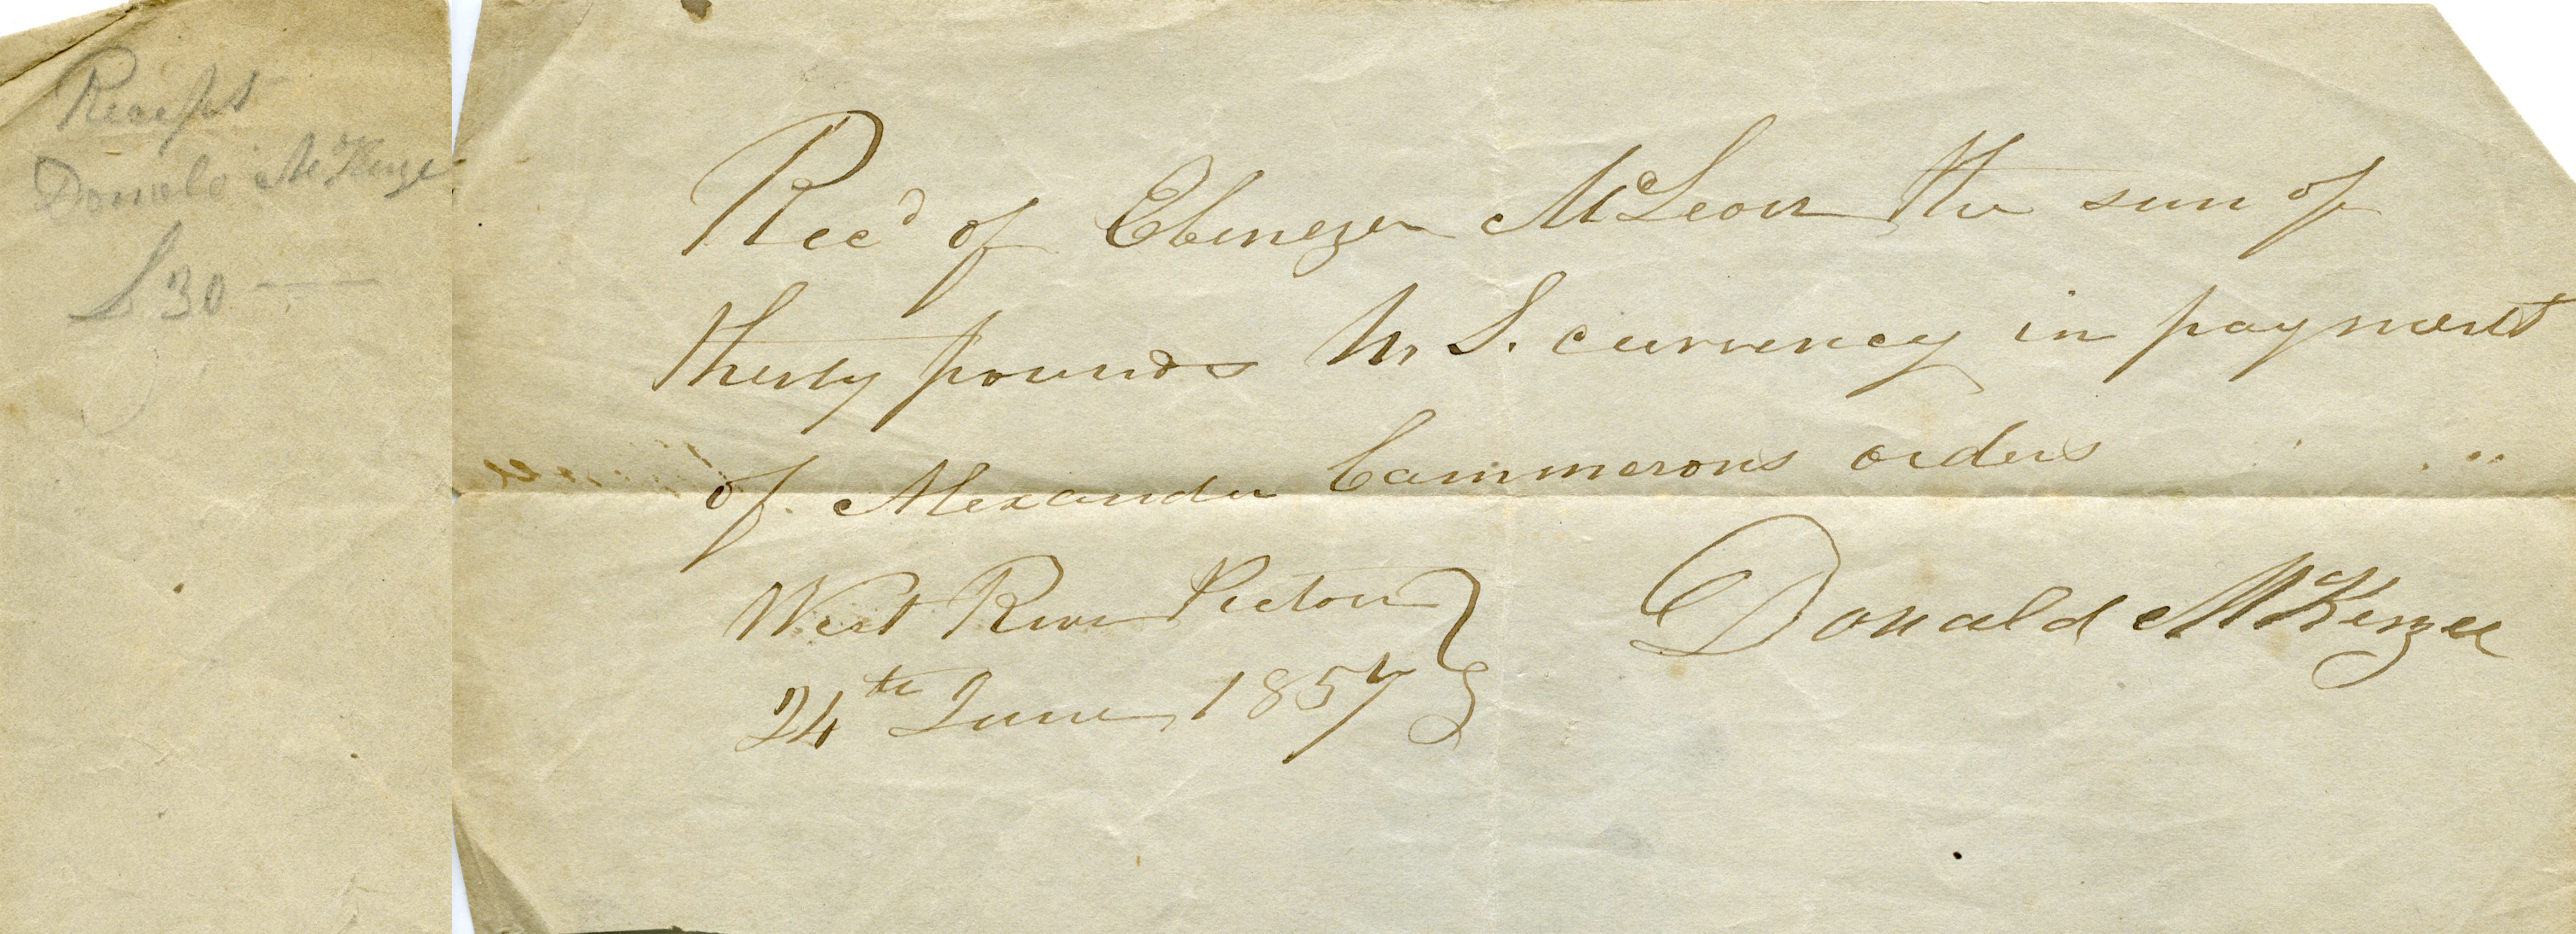 Receipt
Donald McKenzie
£30 —
Rec'd of Ebenezer McLeod the sum of
Thirty pounds N. S. currency in payment
of Alexander Cammerons orders
West River Pictou
24th June 1857
Donald McKenzee